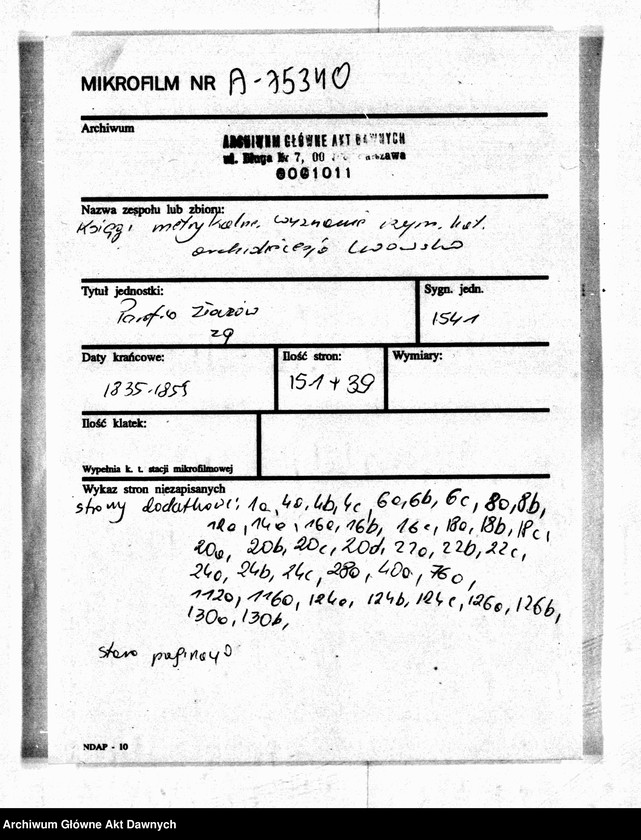 MIKROFILM NR A-75340
Archiwum
ARCHIWUM GŁÓWNE AKT DAWNYCH
ul. Długa Nr 7, 00 Warszawa
0001011
Nazwa zespołu lub zbioru:
Księgi metrykalne wyznania rzym. kat.
archidiecezja Lwowska
Tytuł jednostki:
Sygn. jedn.
Parafia
1541
zg
Daty krańcowe:
Ilość stron:
Wymiary:
1835-1859
151 + 39
Ilość klatek:
Wypełnia k. t. stacji mikrofilmowej
Wykaz stron niezapisanych
strony dodatkowe: 1a, 4a, 4b, 4c, 6a, 6b, 6c, 8a, 8b,
12a, 14a, 16a, 16b, 16c, 18a, 18b, 18c,
20a, 20b, 20c, 20d, 22a, 22b, 22c,
24a, 24b, 24c, 28a, 40a, 76a,
112a, 116a, 124a, 124b, 124c, 126a, 126b,
130a, 130b,
stara paginacja
NDAP - 10
Archiwum Główne Akt Dawnych